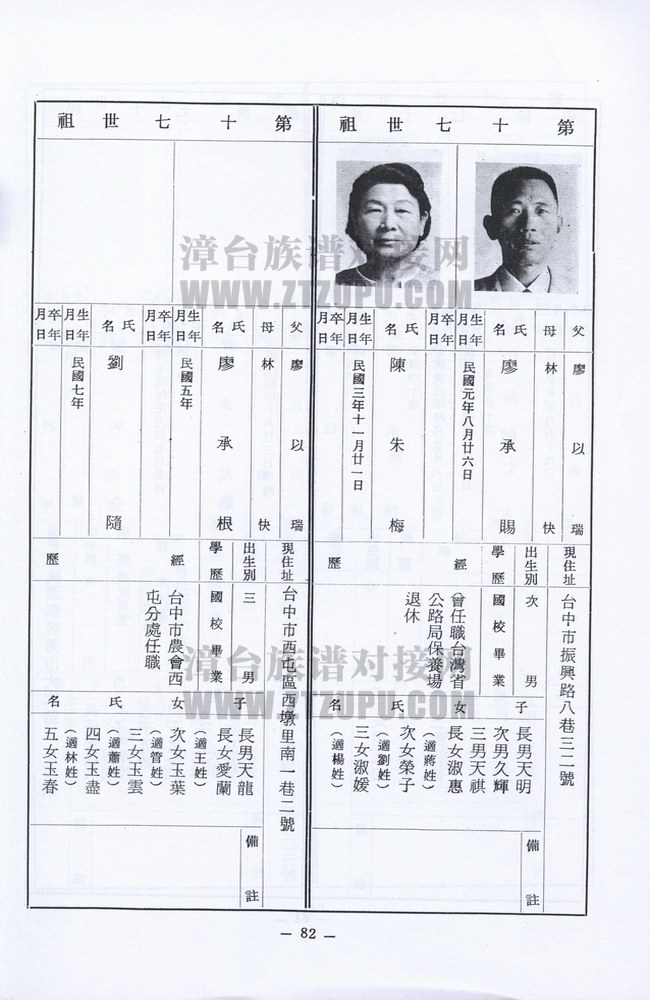 第十七世祖
父 廖以瑞
母 林快
氏名 廖承賜
生年月日 民國元年八月廿六日
卒年月日
氏名 陳朱梅
生年月日 民國三年十一月廿一日
卒年月日
現住址 台中市振興路八巷三二號
出生別 次男
學歷 國校畢業
經歷 曾任職台灣省
公路局保養場
退休
子女氏名
長男天明
次男久輝
三男天祺
長女淑惠
（適蔣姓）
次女榮子
（適劉姓）
三女淑媛
（適楊姓）
備註
第十七世祖
父 廖以瑞
母 林快
氏名 廖承根
生年月日 民國五年
卒年月日
氏名 劉隨
生年月日 民國七年
卒年月日
現住址 台中市西屯區西墩里南一巷二號
出生別 三男
學歷 國校畢業
經歷 台中市農會西
屯分處任職
子女氏名
長男天龍
長女愛蘭
（適王姓）
次女玉葉
（適管姓）
三女玉雲
（適蕭姓）
四女玉盡
（適林姓）
五女玉春
備註
— 82 —
漳台族谱对接网
WWW.ZTZUPU.COM
漳台族谱对接网
WWW.ZTZUPU.COM